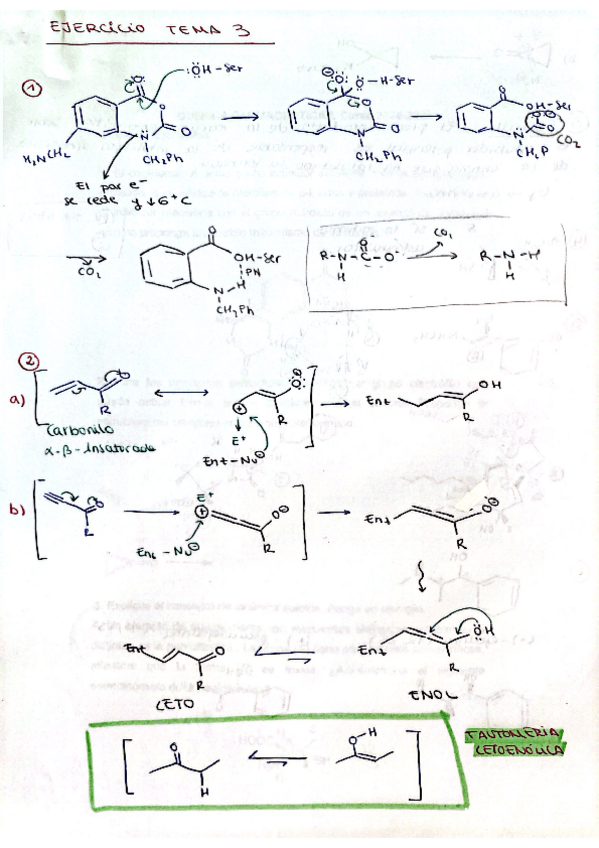 EJERCICIO TEMA 3
1
O
:ÖH-Ser
O
N
O
H₂NCH₂
CH₂Ph
El par e⁻
se cede y ↓δ⁺C
O
Ö-H-Ser
O
N
O
CH₂Ph
O
OH-Ser
N
CO₂
CH₂P
CO₂
O
OH-Ser
PN
N
H
CH₂Ph
R-N-C-O⁻
H
O
CO₂
R-N-H
H
2
a)
O
R
Carbonilo
α-β-Insaturado
O
R
E⁺
Ent-Nu⊖
Ent
OH
R
b)
O
R
E⁺
O⊖
R
Ent-Nu⊖
Ent
O⊖
R
Ent
O
R
CETO
Ent
ÖH
R
ENOL
O
H
O-H
TAUTOMERIA
CETOENÓLICA